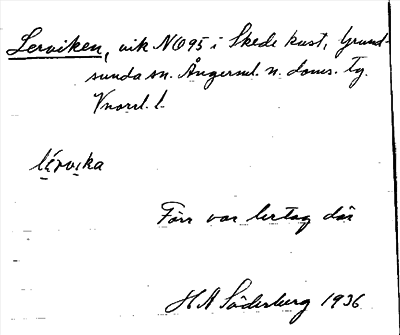 Lerviken, vik NO 95 i Skede kust, Grund-
sunda sn. Ångerml. n. doms. Tg.
Vnorrl. l.
lérvika
Förr var lertag där
H A Söderberg 1936